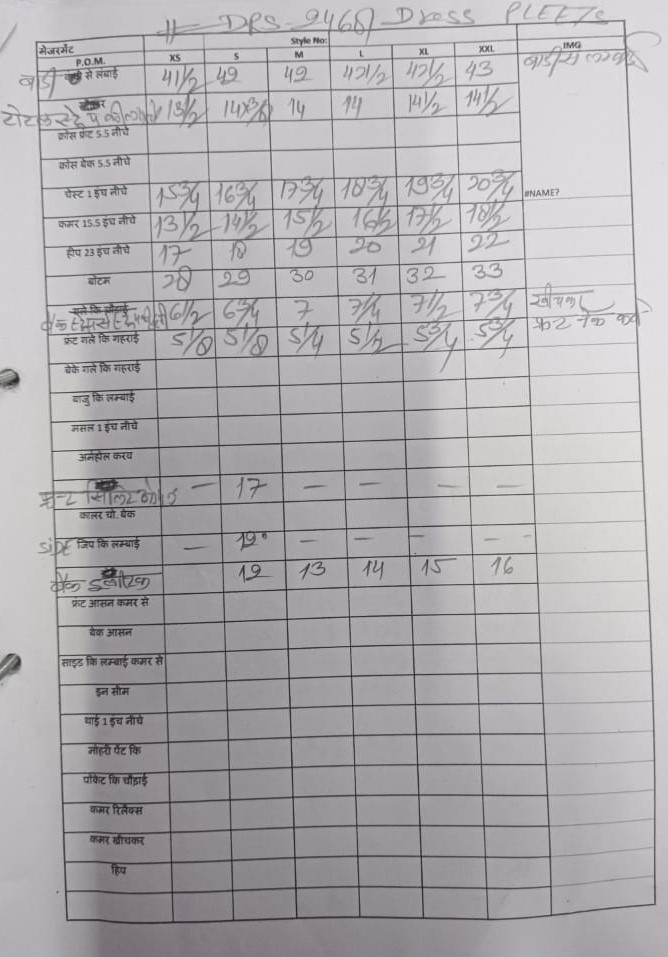 # - DRS-9468) Dress PLEETs
मेजरमेंट Style No:
P.O.M. XS S M L XL XXL IMG
बाडी से लंबाई 41 1/2 42 42 42 1/2 42 1/2 43
13 1/2 14 14 14 1/2 14 1/2
क्रोस फ्रंट 5.5 नीचे
क्रोस बेक 5.5 नीचे
चेस्ट 1 इंच नीचे 15 3/4 16 3/4 17 3/4 18 3/4 19 3/4 20 3/4 #NAME?
कमर 15.5 इंच नीचे 13 1/2 14 1/2 15 1/2 16 1/2 17 1/2 18 1/2
हीप 23 इंच नीचे 17 18 19 20 21 22
बोटम 28 29 30 31 32 33
गले कि चौड़ाई 6 1/2 6 3/4 7 7 1/4 7 1/2 7 3/4
फ्रंट गले कि गहराई 5 1/8 5 1/8 5 1/4 5 1/2 5 3/4 5 3/4 फ्रंट नेक
बेके गले कि गहराई
बाजु कि लम्बाई
मसल 1 इंच नीचे
अर्महोल करव
फ्रन्ट - 17 - - - -
कालर चो. बेक
SIDE जिप कि लम्बाई - 12" - - - -
बैक 12 13 14 15 16
फ्रंट आसन कमर से
बेक आसन
साइड कि लम्बाई कमर से
इन सीम
थाई 1 इंच नीचे
मोहरी पेंट कि
पोकेट कि चौड़ाई
कमर रिलेक्स
कमर खीचकर
हिप